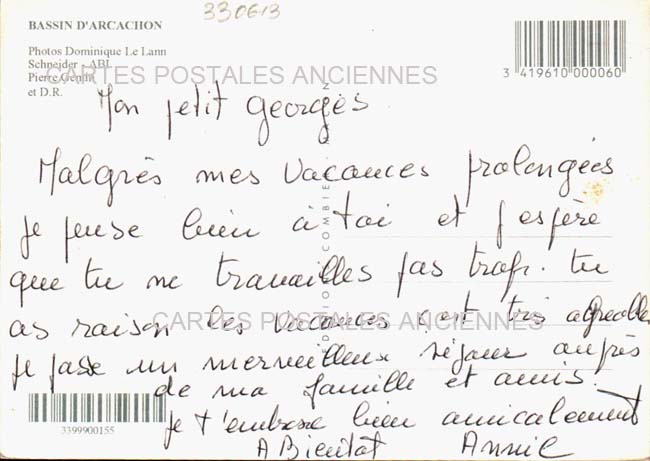 330613
BASSIN D'ARCACHON
Photos Dominique Le Lann
Schneider - ABL
Pierre Genin
et D.R.
3 419610 000060
CARTES POSTALES ANCIENNES
Mon petit Georges
Malgrès mes vacances prolongées
je pense bien à toi et j'espère
que tu ne travailles pas trop. tu
as raison les vacances c'est très agréable
CARTES POSTALES ANCIENNES
je passe un merveilleux séjour auprès
de ma famille et amis.
je t'embrasse bien amicalement
A Bientôt Annie
3399900155